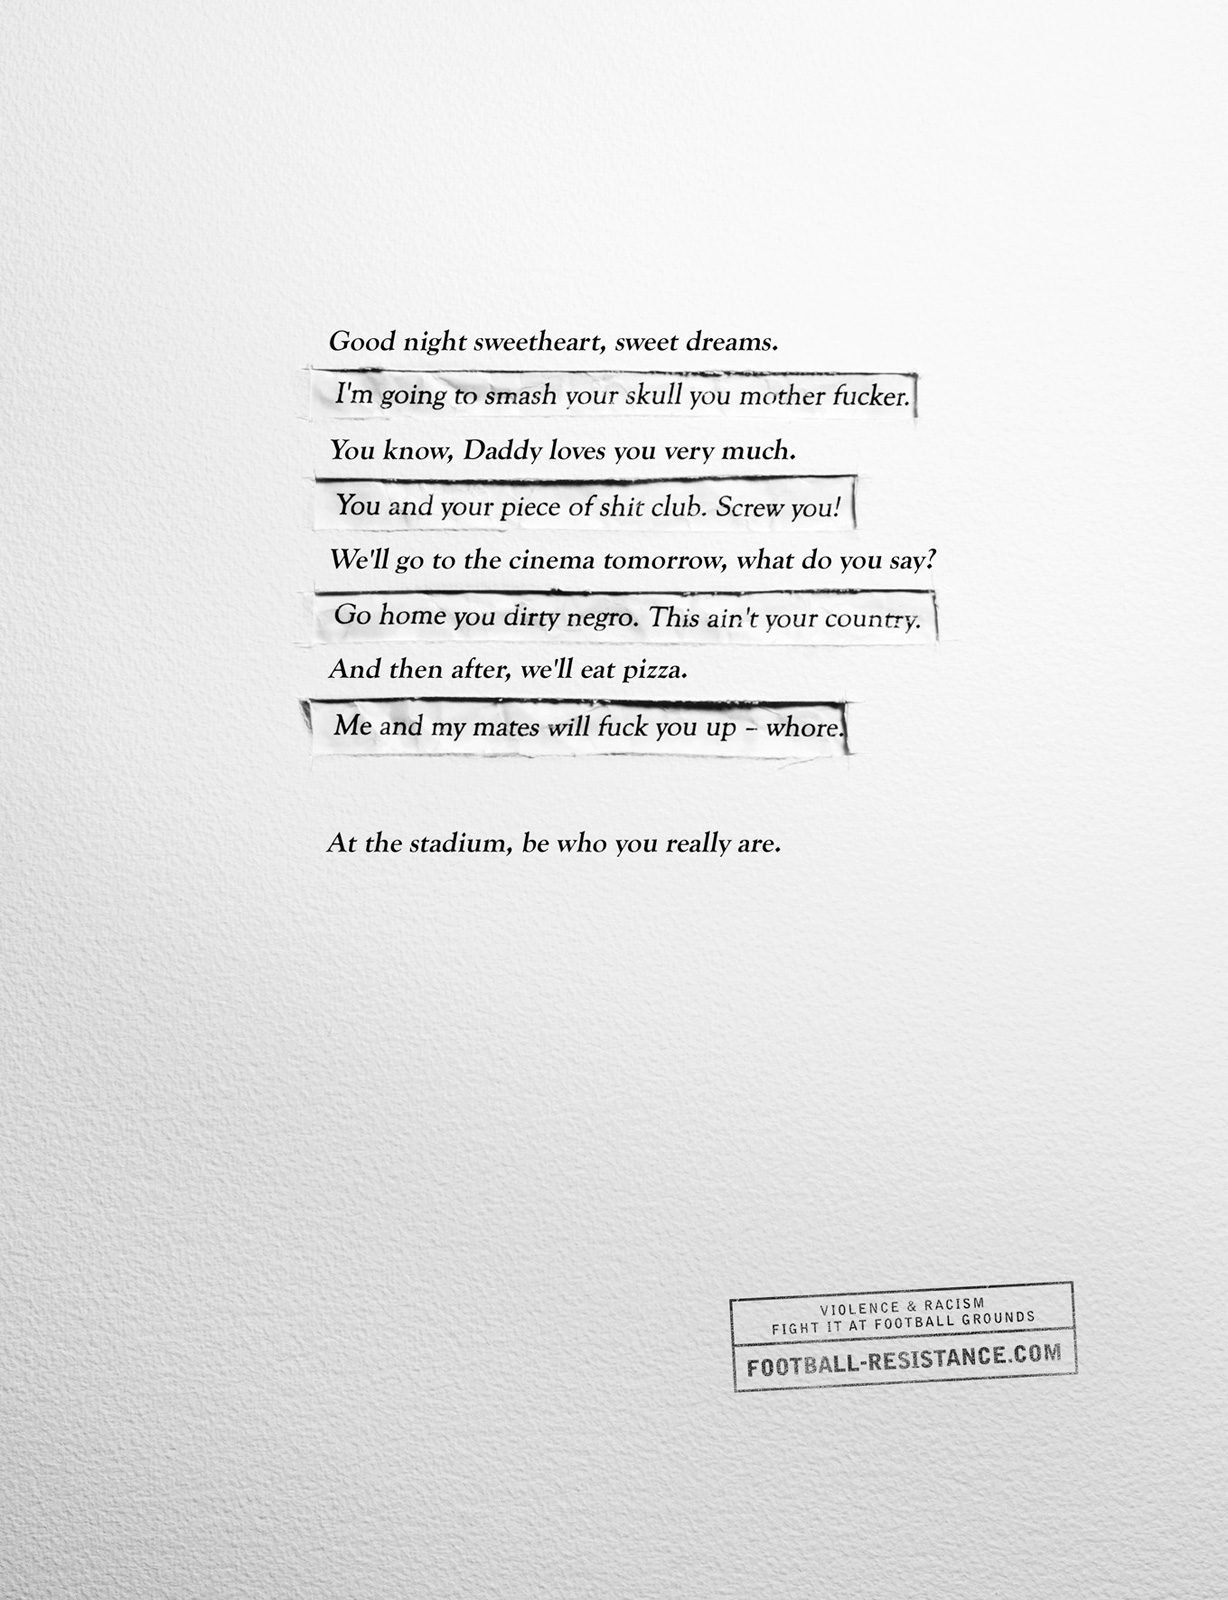 Good night sweetheart, sweet dreams.
I'm going to smash your skull you mother fucker.
You know, Daddy loves you very much.
You and your piece of shit club. Screw you!
We'll go to the cinema tomorrow, what do you say?
Go home you dirty negro. This ain't your country.
And then after, we'll eat pizza.
Me and my mates will fuck you up – whore.
At the stadium, be who you really are.
VIOLENCE & RACISM
FIGHT IT AT FOOTBALL GROUNDS
FOOTBALL-RESISTANCE.COM